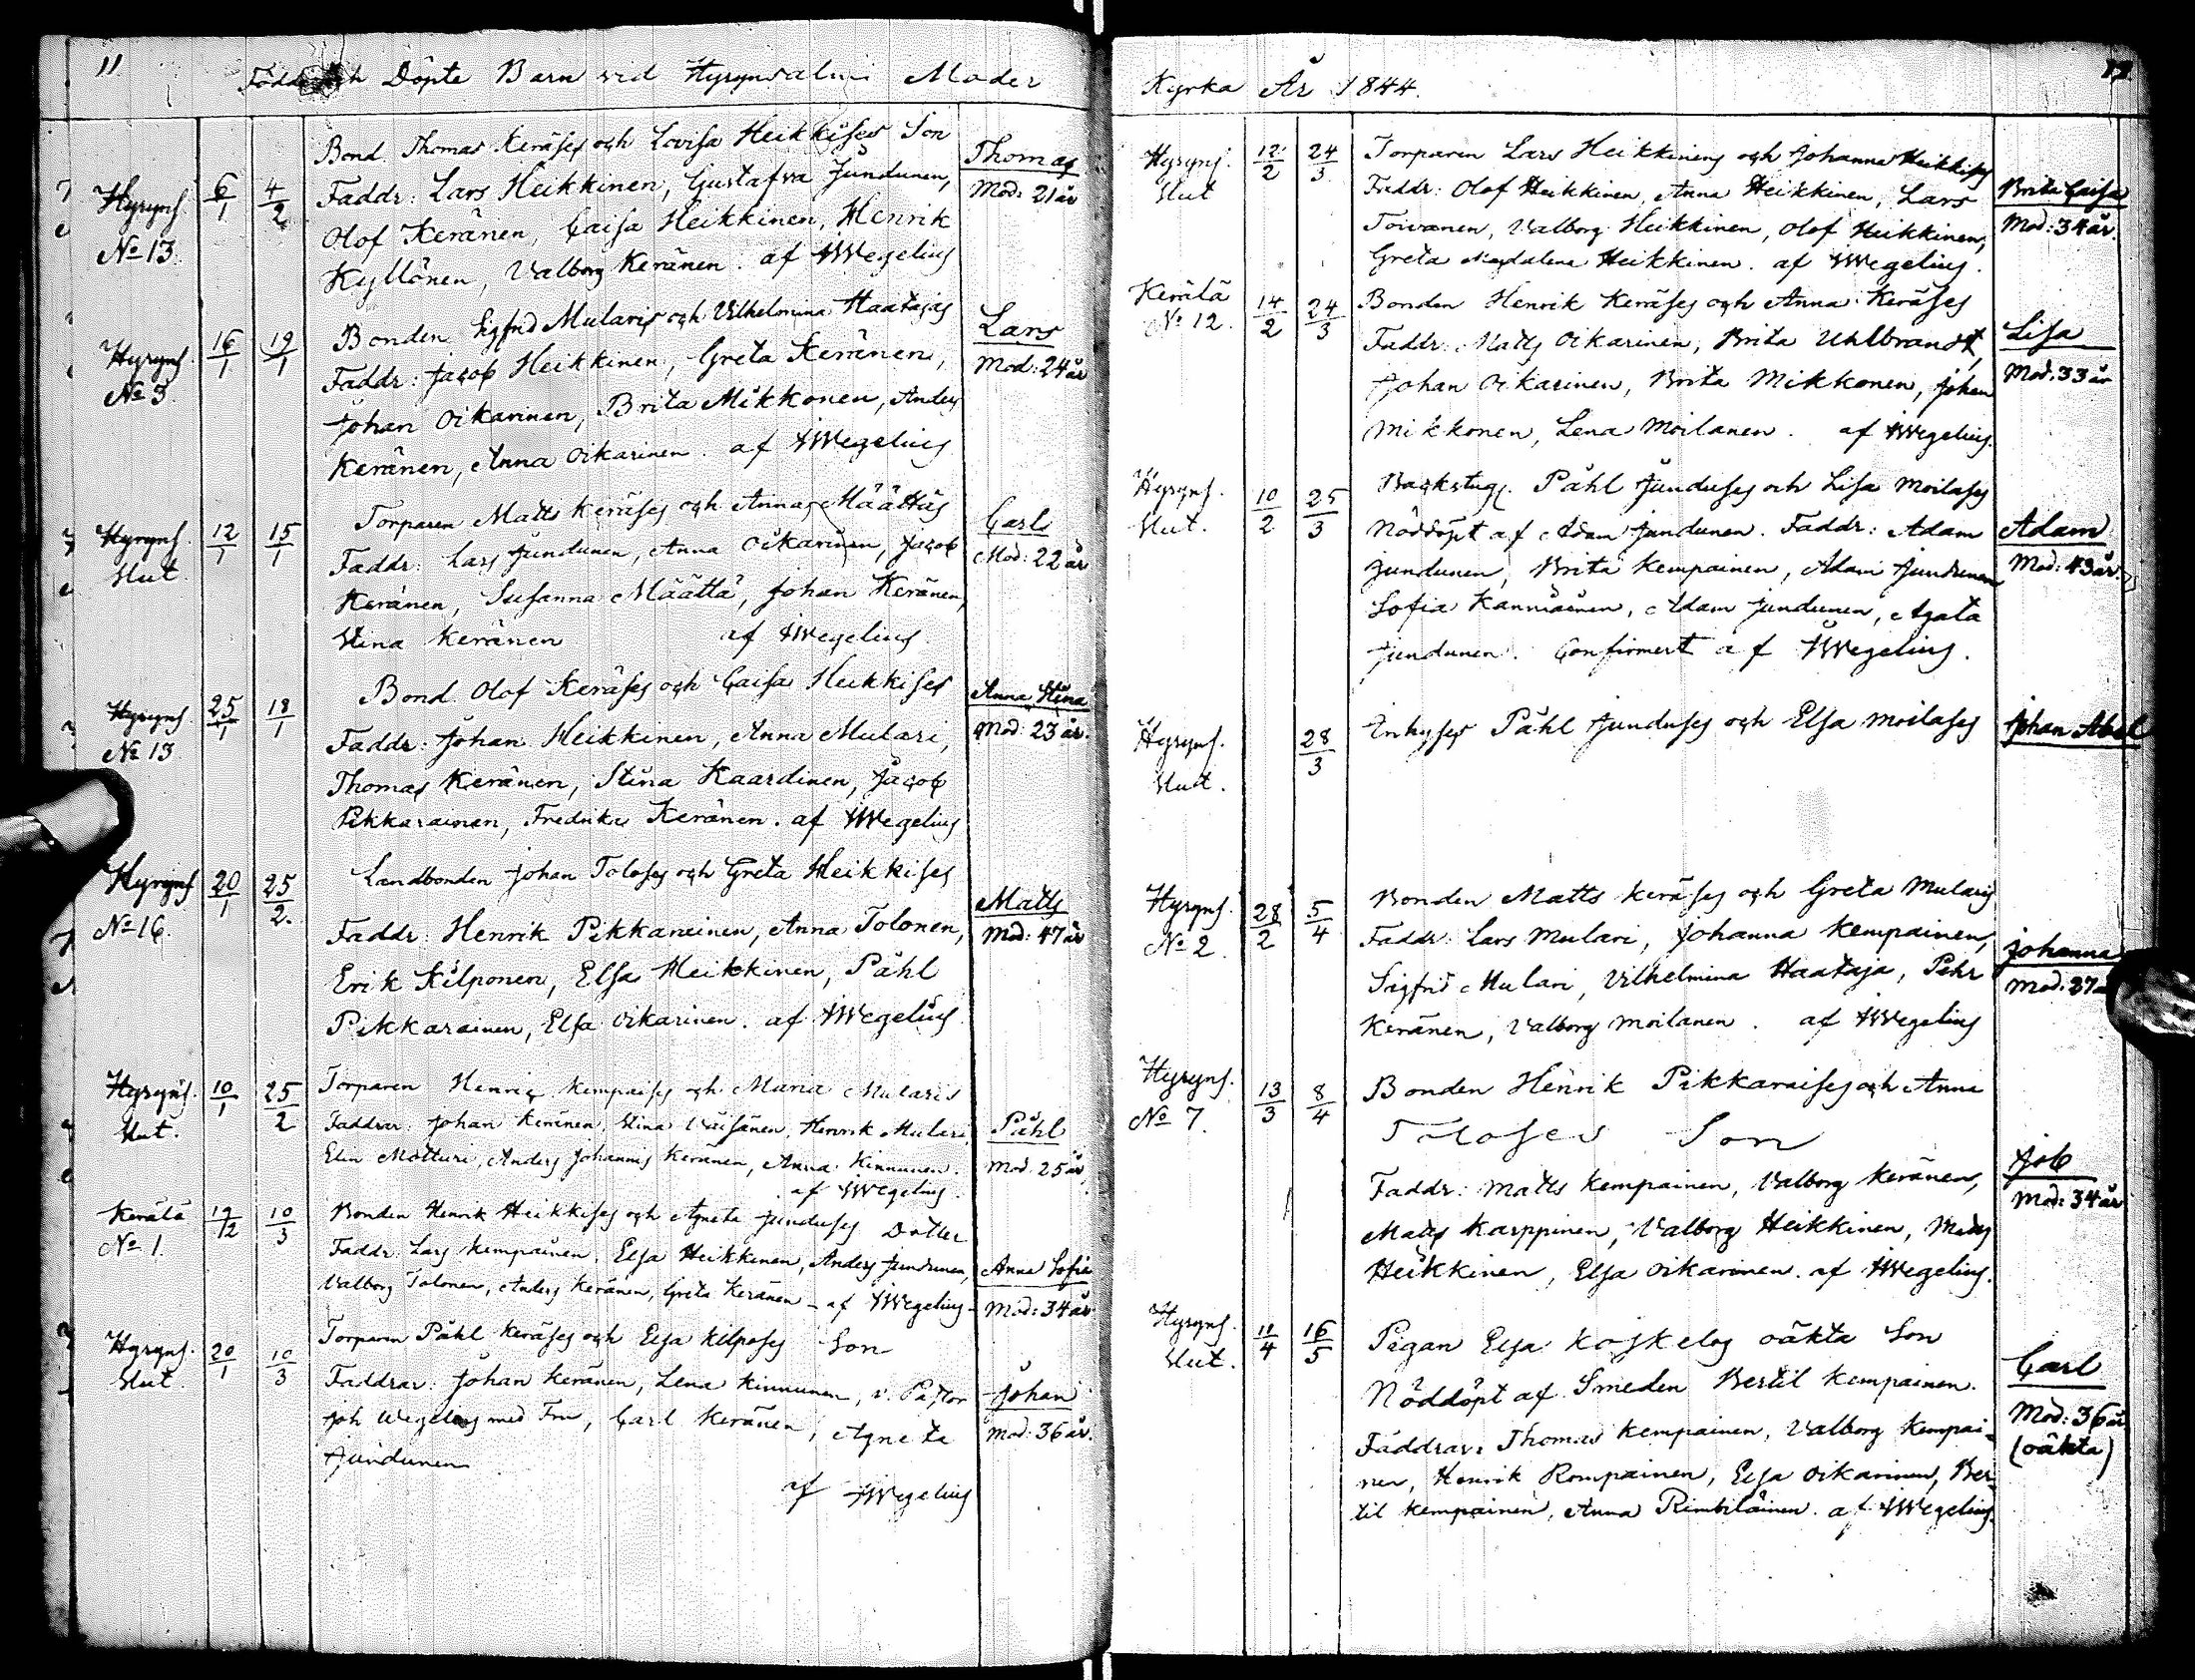 11
Födde och Döpte Barn vid Hyrynsalmi Moder
Hyryns. No 13. 6/1 4/2 Bond. Thomas Keräses och Lovisa Heikkises Son Thomas
Faddr: Lars Heikkinen, Gustafva Jundunen, Mod: 21 år
Olof Keränen, Caisa Heikkinen, Henrik
Kyllönen, Valborg Keränen. af JWegelius
Hyryns. No 3. 16/1 19/1 Bonden Sigfrid Mularis och Vilhelmina Haatajas Lars
Faddr: Jacob Heikkinen, Greta Keränen, Mod: 24 år
Johan Oikarinen, Brita Mikkonen, Anders
Keränen, Anna Oikarinen. af JWegelius
Hyryns. Slut. 12/1 15/1 Torparen Matts Keräses och Annas Määttäs Carl
Faddr: Lars Jundunen, Anna Oikarinen, Jacob Mod: 22 år
Keränen, Susanna Määttä, Johan Keränen,
Stina Keränen af JWegelius
Hyryns. No 13 25/1 18/1 Bond. Olof Keräses och Caisa Heikkises Anna Stina
Faddr: Johan Heikkinen, Anna Mulari, Mod: 23 år.
Thomas Keränen, Stina Kaardinen, Jacob
Pikkarainen, Fredrika Keränen. af JWegelius
Hyryns No 16. 20/1 25/2. Landbonden Johan Toloses och Greta Heikkises Matts
Faddr: Henrik Pikkarainen, Anna Tolonen, Mod: 47 år
Erik Kilponen, Elsa Heikkinen, Påhl
Pikkarainen, Elsa Oikarinen. af JWegelius
Hyryns. Slut. 10/1 25/2 Torparen Henric Kempaises och Maria Mularis
Faddrar: Johan Keränen, Stina Väisänen, Henrik Mulari, Påhl
Elin Motturi, Anders Johannis Keränen, Anna Kinnunen. Mod. 25 år,
af JWegelius.
Kerälä No 1. 10/3 Bonden Henrik Heikkises och Agneta Junduses Dotter
Faddr: Lars Kempainen, Elsa Heikkinen, Anders Jundunen, Anna Sofia
Valborg Tolonen, Anders Keränen, Greta Keränen - af JWegelius - Mod: 34 år
Hyryns. Slut. 20/1 10/3 Torparen Påhl Keräses och Elsa Kilposes Son
Faddrar: Johan Keränen, Lena Kinnunen, v. Pastor Johan
Joh Wegelius med Fru, Carl Keränen, Agneta Mod: 36 år.
Jundunen
af JWegelius
Kyrka År 1844.
Hyryns. Slut 12/2 24/3 Torparen Lars Heikkinens och Johanna Heikkises
Faddr: Olof Heikkinen, Anna Heikkinen, Lars Brita Caisa
Toivanen, Valborg Heikkinen, Olof Heikkinen, Mod: 34 år.
Greta Magdalena Heikkinen. af JWegelius.
Kerälä No 12. 14/2 24/3 Bonden Henrik Keräses och Anna Keräses
Faddr: Matts Oikarinen, Brita Uhlbrandt, Lisa
Johan Oikarinen, Brita Mikkonen, Johan Mod: 33 år
Mikkonen, Lena Moilanen. af JWegelius.
Hyryns. Slut. 10/2 25/3 Backstug. Påhl Junduses och Lisa Moilases
Nöddöpt af Adam Jundunen. Faddr: Adam Adam
Jundunen, Brita Kempainen, Adam Jundunen Mod: 43 år.
Sofia Kanniainen, Adam Jundunen, Agata
Jundunen. Confirmert af JWegelius.
Hyryns. Slut. 28/3 Inhyses Påhl Junduses och Elsa Moilases Johan Abel
Hyryns. No 2. 28/2 5/4 Bonden Matts Keräses och Greta Mularis
Faddr: Lars Mulari, Johanna Kempainen, Johanna
Sigfrid Mulari, Vilhelmina Haataja, Pehr Mod: 27
Keränen, Valborg Moilanen. af JWegelius
Hyryns. No 7. 13/3 8/4 Bonden Henrik Pikkaraises och Anna
Toloses Son
Faddr: Matts Kempainen, Valborg Keränen, Job
Matts Karppinen, Valborg Heikkinen, Matts Mod: 34 år
Heikkinen, Elsa Oikarinen. af JWegelius.
Hyryns. Slut. 11/4 16/5 Pigan Elsa Koskelos oäkta Son
Nöddöpt af Smeden Bertil Kempainen. Carl
Faddrar: Thomas Kempainen, Valborg Kempai- Mod: 36 år
nen, Henrik Rompainen, Elsa Oikarinen, Ber- (oäkta)
til Kempainen, Anna Rimbiläinen. af JWegelius.